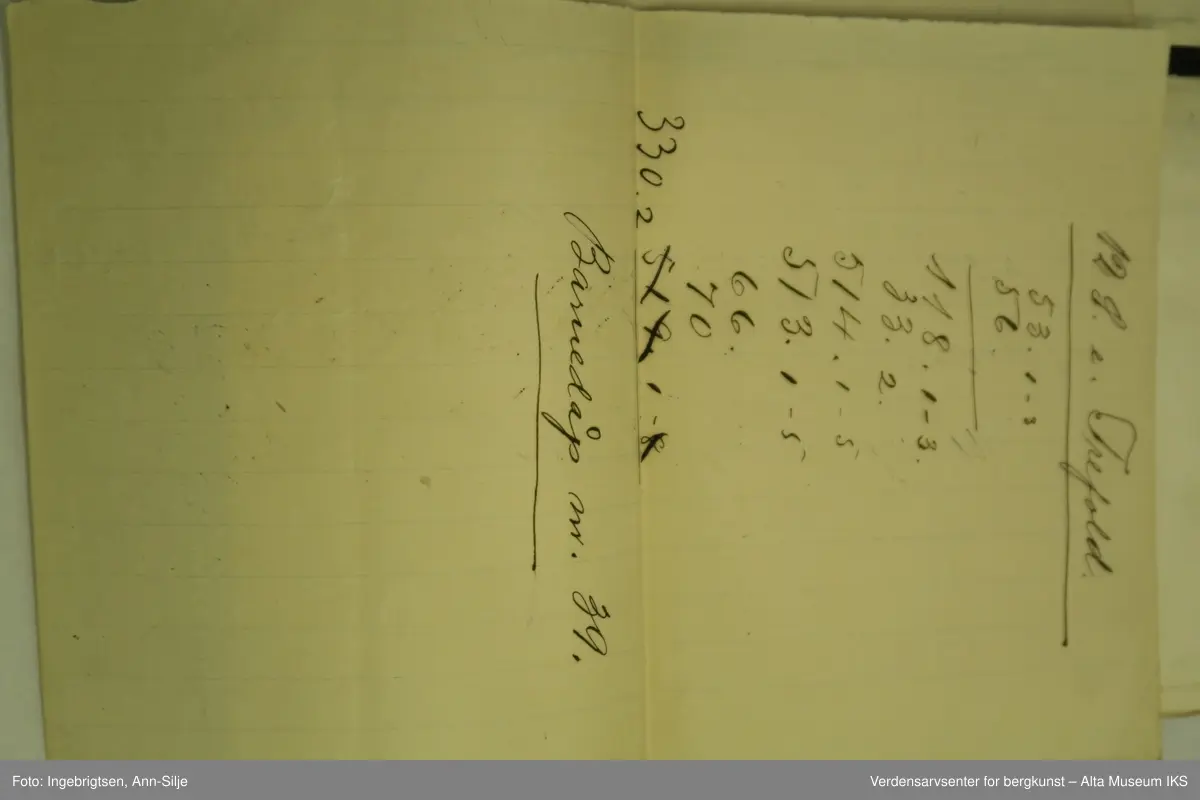 19 s. e. Trefold.
53. 1-3
56.
118. 1-3.
33. 2.
514. 1-5
513. 1-5
66.
70
330. 2 519. 1-8
Barnedåp nr. 39.
Foto: Ingebrigtsen, Ann-Silje
Verdensarvsenter for bergkunst – Alta Museum IKS